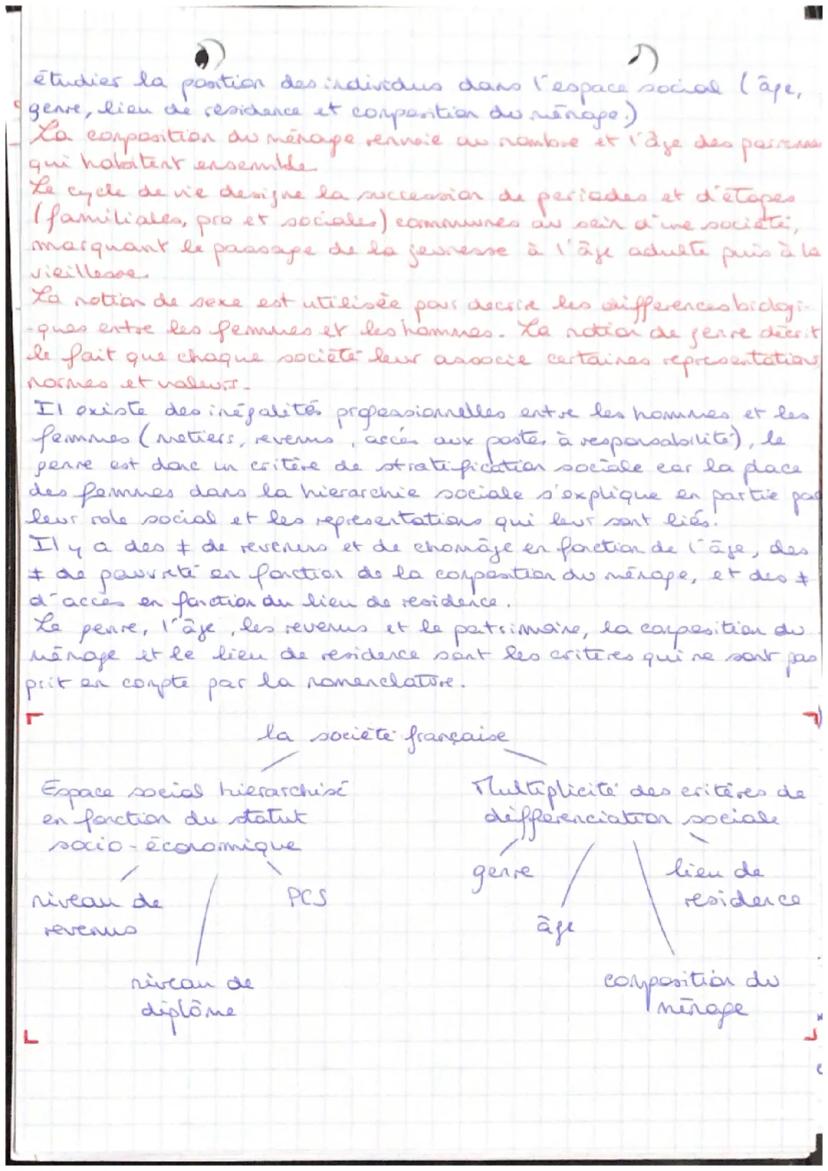 étudier la position des individus dans l'espace social (âge,
genre, lieu de residence et composition du ménage.)
La composition du ménage renvoie au nombre et l'âge des personnes
qui habitent ensemble
Le cycle de vie designe la succession de periodes et d'étapes
(familiales, pro et sociales) communes au sein d'une société,
marquant le passage de la jeunesse à l'âge adulte puis à la
vieillesse.
La notion de sexe est utilisée pour decrire les differences biologi-
-ques entre les femmes et les hommes. La notion de genre décrit
le fait que chaque société leur associe certaines representations
normes et valeurs.
Il existe des inégalités professionnelles entre les hommes et les
femmes (metiers, revenus, accés aux postes à responsabilité), le
genre est donc un critère de stratification sociale car la place
des femmes dans la hierarchie sociale s'explique en partie par
leur role social et les representations qui leur sont liés.
Il y a des ≠ de revenus et de chomâge en fonction de l'âge, des
≠ de pauvreté en fonction de la composition du ménage, et des ≠
d'accès en fonction du lieu de residence.
Le genre, l'âge, les revenus et le patrimoine, la composition du
ménage et le lieu de residence sont les criteres qui ne sont pas
prit en compte par la nomenclature.
la société française
Espace social hierarchisé
en fonction du statut
socio-économique
niveau de
revenus
niveau de
diplôme
PCS
Multiplicité des critères de
différenciation sociale
genre
âge
composition du
ménage
lieu de
residence